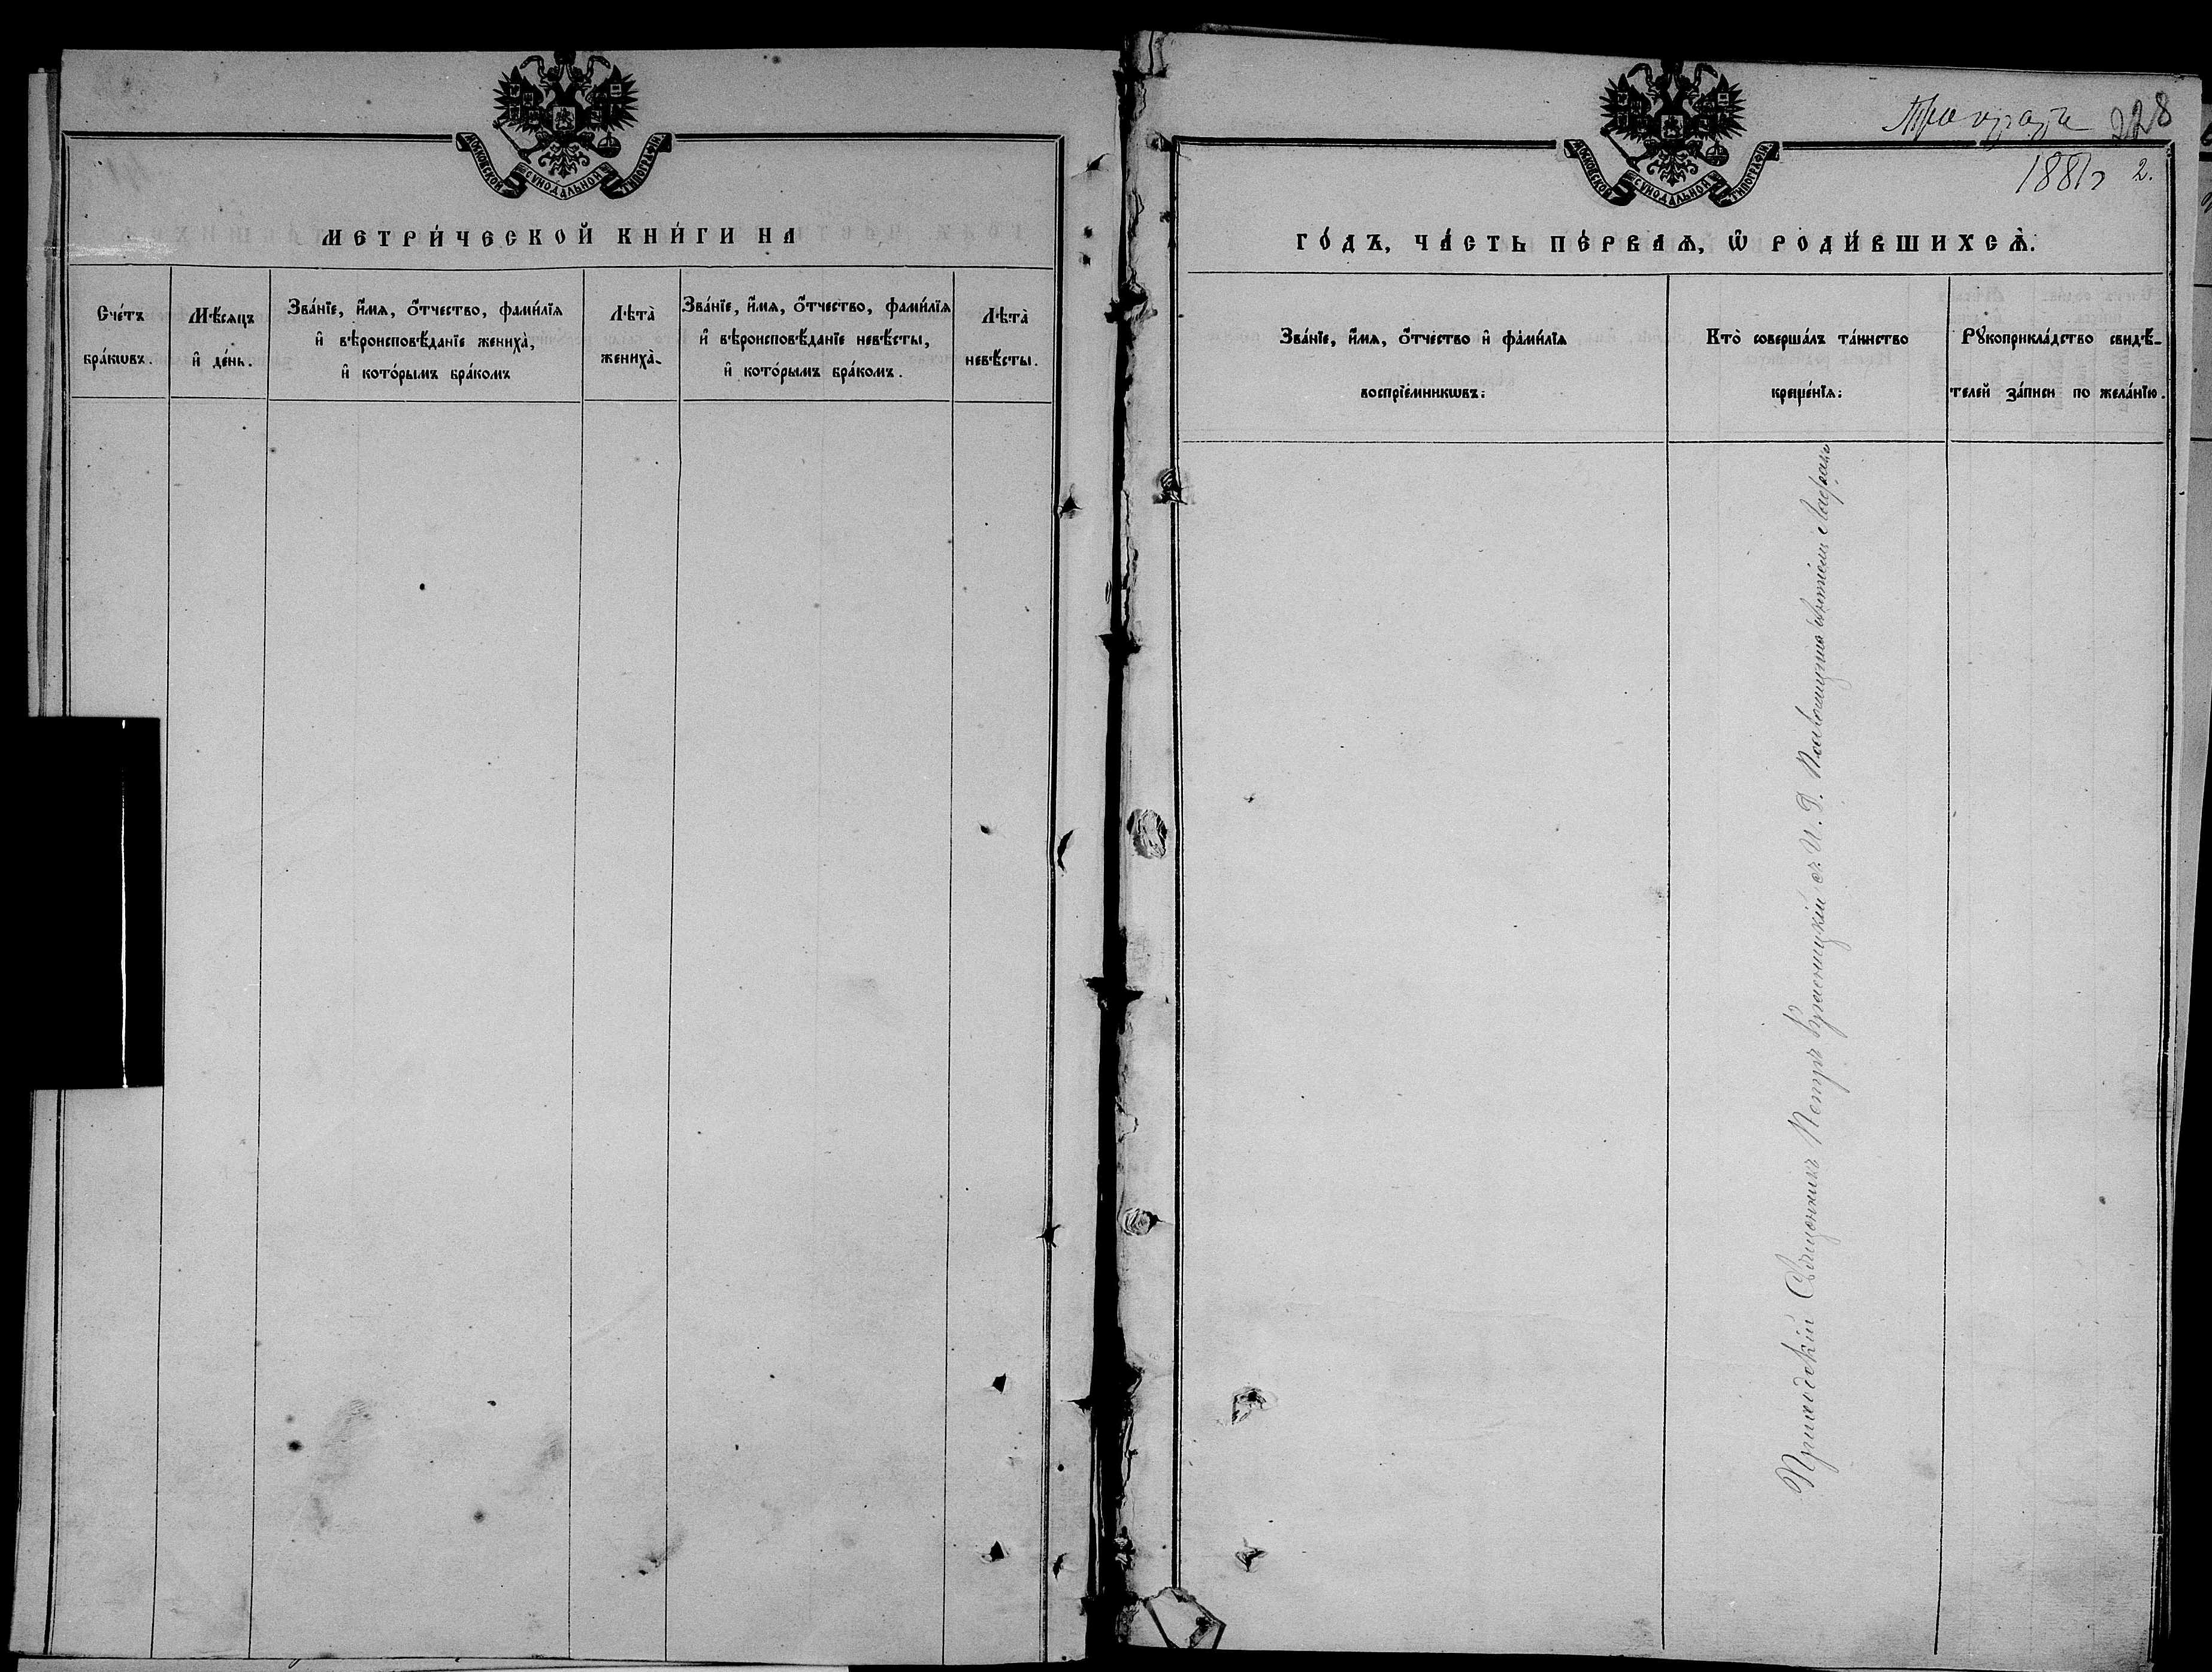 МОСКОВСКОЙ СУНОДАЛЬНОЙ ТИПОГРАФІИ
МЕТРИ́ЧЕСКОЙ КНИ́ГИ НА
Сче́тъ бра́кѡвъ.
Мѣ́сяцъ и҆ де́нь.
Зва́нїе, и҆́мѧ, ѻ҆́тчество, фами́лїѧ
и҆ вѣроисповѣ́данїе жениха̀,
и҆ кото́рымъ бра́комъ
Лѣта̀ жениха̀.
Зва́нїе, и҆́мѧ, ѻ҆́тчество, фами́лїѧ
и҆ вѣроисповѣ́данїе невѣ́сты,
и҆ кото́рымъ бра́комъ.
Лѣта̀ невѣ́сты.
228
МОСКОВСКОЙ СУНОДАЛЬНОЙ ТИПОГРАФІИ
1881 2.
ГО́ДЪ, ЧА́СТЬ ПЕ́РВАѦ, Ѡ҆ РОДИ́ВШИХСѦ̀.
Зва́нїе, и҆́мѧ, ѻ҆́тчество и҆ фами́лїѧ
воспрїе́мникѡвъ:
Кто̀ соверша́лъ та́инство
креще́нїѧ:
Рꙋкоприкла́дство свидѣ́-
телей за́писи по жела́нїю.
Приходскій Священникъ Петръ Красницкій съ И. Д.